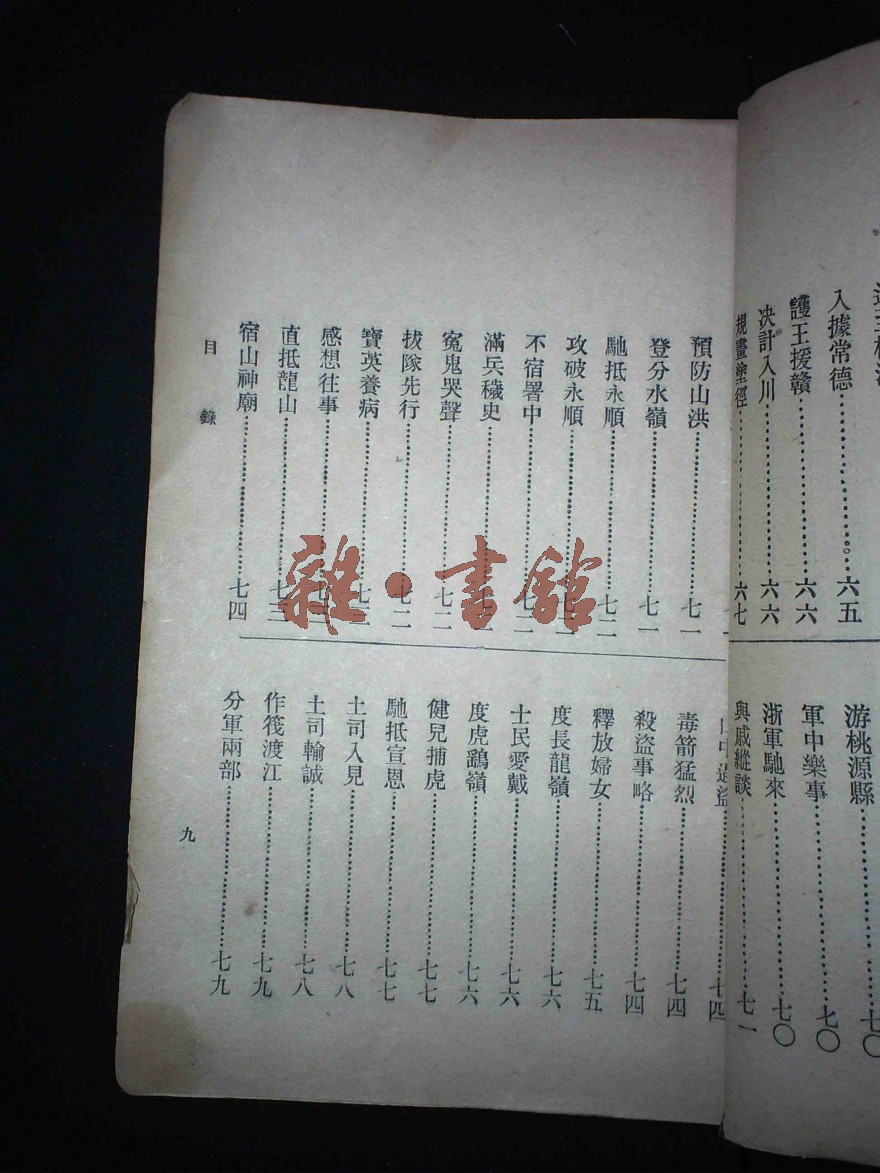 入據常德……六五
護王援贛……六六
决計入川……六六
規畫塗徑……六七
游桃源縣……七〇
軍中樂事……七〇
浙軍馳來……七〇
與戚縱談……七一
預防山洪……七一
登分水嶺……七一
馳抵永順……七二
攻破永順
不宿署中……七二
滿兵穢史
冤鬼哭聲……七二
拔隊先行……七二
寶英養病……七三
感想往事
直抵龍山……七三
宿山神廟……七四
毒箭猛烈……七四
殺盜事略……七四
釋放婦女……七五
度長龍嶺……七六
士民愛戴……七六
度虎鷂嶺……七六
健兒捕虎……七七
馳抵宣恩……七七
土司入見……七八
土司輸誠……七八
作筏渡江……七九
分軍兩部……七九
目錄
九
雜·書館